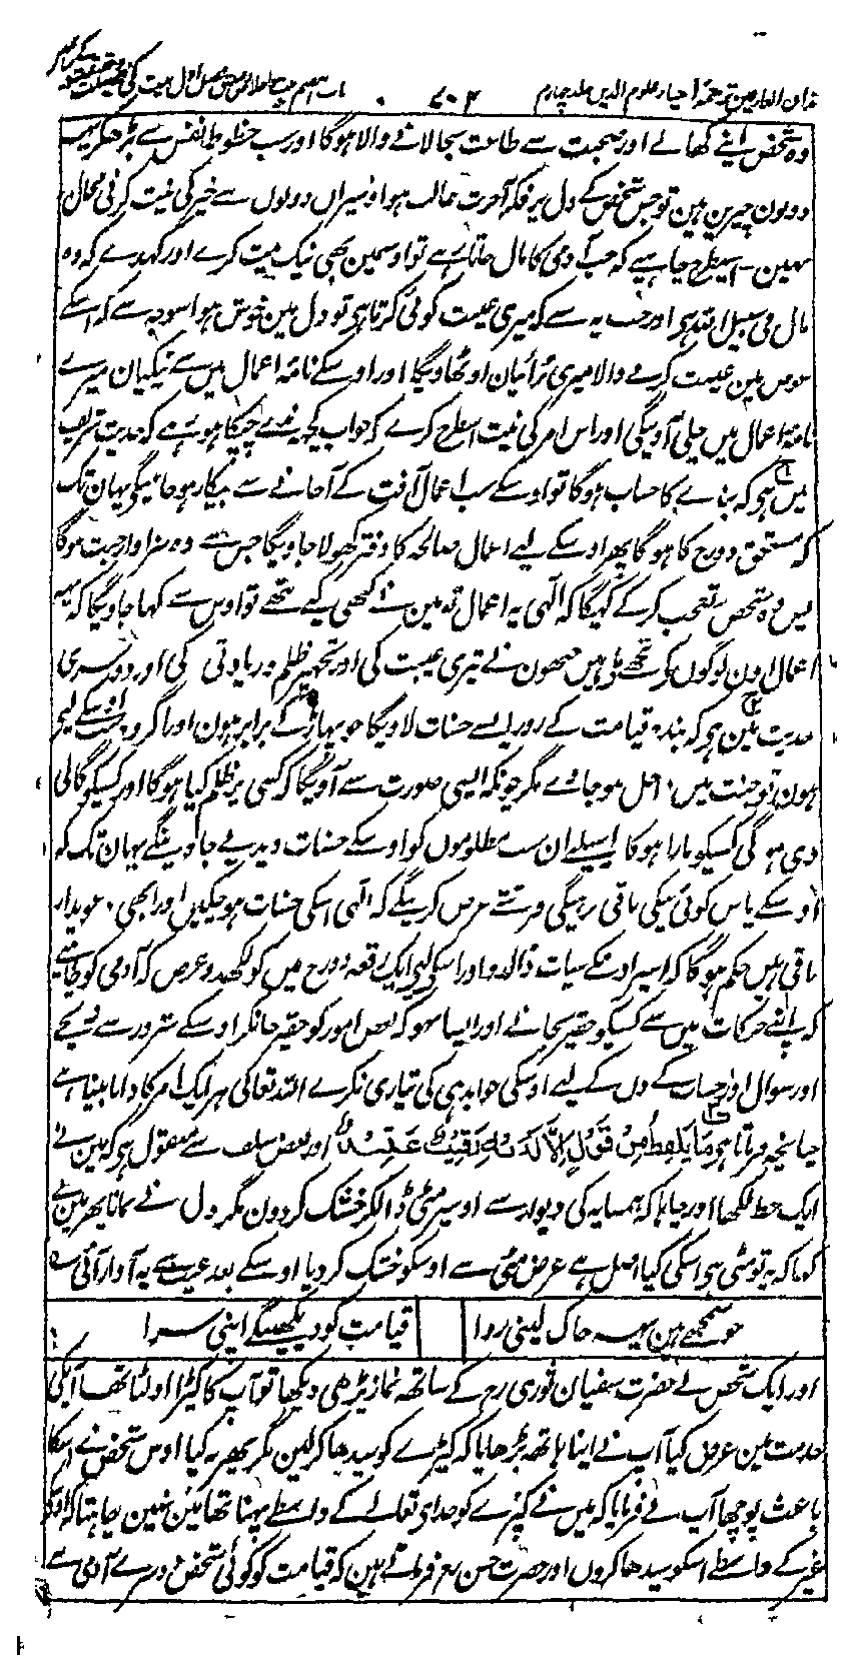 مذاق العارفین ترجمۂ احیاء علوم الدین جلد چہارم ۷۰۲ باب ہفتم فصل اول نیت کی فضیلت
وہ شخص اپنے کھانے اور صحبت سے طاعت بجالانے والا ہوگا اور سب حظوظ نفس سے بڑھکر یہی
دو چیزین ہین تو جس شخص کے دل پر فکر آخرت غالب ہو اوسپر ان دونوں سے خیر کی نیت کرنی محال
نہین۔ اسیطرح چاہیے کہ جب آدمی کا مال جاتا رہے تو اوسمین بھی نیک نیت کرے اور کہدے کہ وہ
مال فی سبیل اللہ ہی اور جب یہ سنے کہ میری غیبت کوئی کرتا ہی تو دل مین خوش ہو اسوجہ سے کہ اسکے
عوض مین غیبت کرنے والا میری برائیان اوٹھاویگا اور اوسکے نامۂ اعمال میں سے نیکیان میرے
نامۂ اعمال میں چلی آوینگی اور اس امر کی نیت اسطرح کرے کہ جواب کچھ ندے چپکا ہو رہے کہ حدیث شریف
میں ہی کہ بندے کا حساب ہوگا تو اوسکے سب اعمال آفت کے آجانے سے بیکار ہوجائینگے یہان تک
کہ مستحق دوزخ کا ہوگا پھر اوسکے لیے اعمال صالحہ کا دفتر کھولا جاویگا جس سے وہ سزاوار جنت ہوگا
پس وہ شخص تعجب کرکے کہیگا کہ الٰہی یہ اعمال تو مین نے کبھی کیے نہ تھے تو اوس سے کہا جاویگا کہ یہ
اعمال اون لوگوں کے تجھے ملے ہیں جنھون نے تیری غیبت کی اور تجھپر ظلم و زیادتی کی اور دوسری
حدیث مین ہی کہ بندہ قیامت کے روز ایسے حسنات لاویگا جو پہاڑ کے برابر ہون اور اگر وہ سب اوسکے لیے
ہون تو جنت میں داخل ہوجائے مگر چونکہ ایسی صورت سے آویگا کہ کسی پر ظلم کیا ہوگا اور کسیکو گالی
دی ہوگی کسیکو مارا ہوگا اسیلیے ان سب مظلوموں کو اوسکے حسنات دیدیے جاوینگے یہان تک کہ
اوسکے پاس کوئی نیکی باقی نرہیگی فرشتے عرض کرینگے کہ الٰہی اسکی حسنات ہوچکیں اور ابھی دعویدار
باقی ہیں حکم ہوگا کہ اسپر اونکے سیئات ڈالدو اور اسکے لیے ایک رقعہ دوزخ میں کو لکھدو غرض کہ آدمی کو چاہیے
کہ اپنے حرکات میں سے کسیکو حقیر نجانے اور ایسا نہو کہ بعض امور کو حقیر جانکر اوسکے شرور سے نہ بچے
اور سوال اور حساب کے دن کے لیے اوسکی جوابدہی کی تیاری نکرے اللہ تعالیٰ ہر ایک امر کا دانا بینا ہے
چنانچہ فرماتا ہو مَا يَلْفِظُ مِنْ قَوْلٍ اِلَّا لَدَيْهِ رَقِيبٌ عَتِيْدٌ اور بعض سلف سے منقول ہی کہ مین نے
ایک خط لکھا اور چاہا کہ ہمسایہ کی دیوار سے اوسپر مٹی ڈالکر خشک کردون مگر دل نے نمانا پھر مین نے
کہا کہ یہ تو مٹی ہی اسکی کیا اصل ہے غرض مٹی سے اوسکو خشک کردیا اوسکے بعد غیب سے یہ آواز آئی ؎
جو سمجھے ہین یہہ خاک لینی روا قیامت کو دیکھینگے اپنی سزا
اور ایک شخص نے حضرت سفیان ثوری رح کے ساتھ نماز پڑھی دیکھا تو آپ کا کپڑا اولٹا تھا آپکی
خدمت مین عرض کیا آپ نے اپنا ہاتھ بڑھایا کہ کپڑے کو سیدھا کرلین مگر پھر نہ کیا اوس شخص نے اسکا
باعث پوچھا آپ نے فرمایا کہ میں نے کپڑے کو خدای تعالےٰ کے واسطے پہنا تھا مین نہین چاہتا کہ اوسکو
غیر کے واسطے اسکو سیدھا کروں اور حضرت حسن رح فرماتے ہین کہ قیامت کو کوئی شخص دوسرے آدمی سے